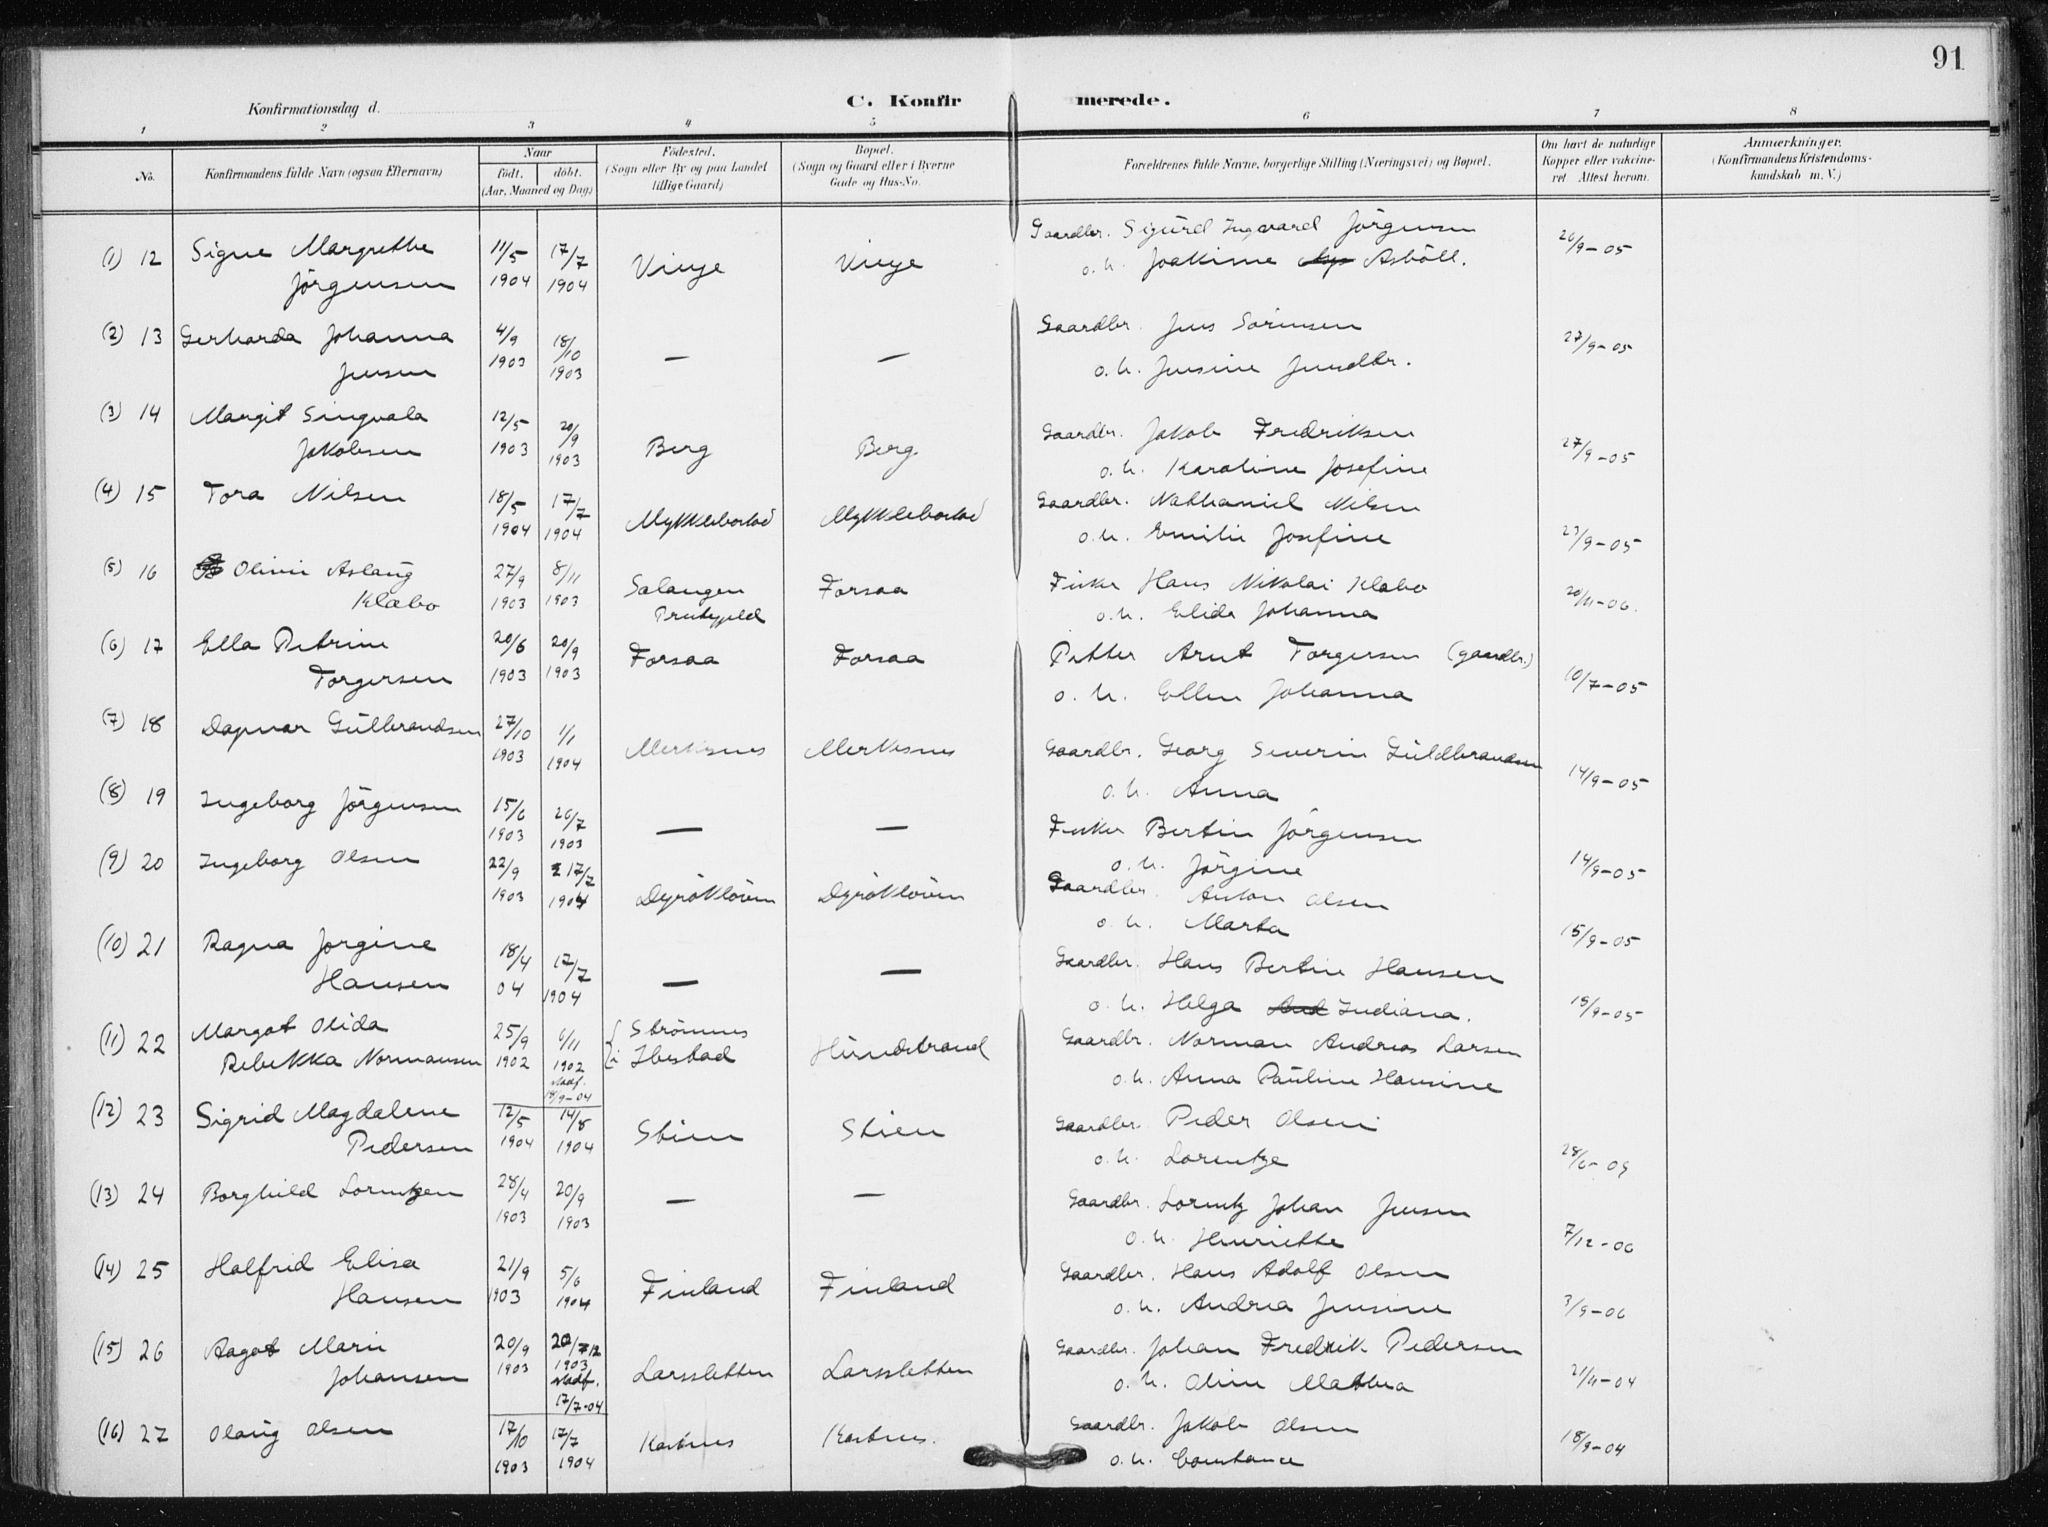 91
Konfirmationsdag d.
C. Konfirmerede.
1 2 3 4 5 6 7 8
No.
Konfirmandens fulde Navn (ogsaa Efternavn)
Naar
födt. döbt.
(Aar, Maaned og Dag)
Födested.
(Sogn eller By og paa Landet
tillige Gaard)
Bopæl.
(Sogn og Gaard eller i Byerne
Gade og Hus-No.
Forældrenes fulde Navne, borgerlige Stilling (Næringsvei) og Bopæl.
Om havt de naturlige
Kopper eller vakcine-
ret Attest herom.
Anmærkninger.
(Konfirmandens Kristendoms-
kundskab m. V.)
(1) 12 Signe Margrethe 11/5 17/7 Vinje Vinje Gaardbr. Sigurd Ingvard Jörgensen 26/9-05
Jörgensen 1904 1904 o. h. Joakime Asböll.
(2) 13 Gerharda Johanna 4/9 18/10 — — Gaardbr. Jens Sörensen 27/9-05
Jensen 1903 1903 o. h. Jensine Jensdtr.
(3) 14 Margit Singvala 12/5 20/9 Berg Berg Gaardbr. Jakob Fredriksen 27/9-05
Jakobsen 1903 1903 o. h. Karoline Josefine
(4) 15 Tora Nilsen 18/5 17/7 Myklebostad Myklebostad Gaardbr. Nathaniel Nilsen
1904 1904 o. h. Emilie Josefine 23/9-05
(5) 16 Olivie Aslaug 27/9 8/11 Salangen Forsaa Fisker Hans Nikolai Klæbo 20/11-06.
Klæbo 1903 1903 Prestegjeld o. h. Elida Johanna
(6) 17 Ella Petrine 20/6 20/9 Forsaa Forsaa Petter Arnt Torgersen (gaardbr.)
Torgersen 1903 1903 o. h. Ellen Johanna 10/7-05
(7) 18 Dagmar Gulbrandsen 27/10 1/1 Merkesnes Merkesnes Gaardbr. Georg Severin Guldbrandsen
1903 1904 o. h. Anna 14/9-05
(8) 19 Ingeborg Jörgensen 15/6 26/7 — — Fisker Bertin Jörgensen
1903 1903 o. h. Jörgine 14/9-05
(9) 20 Ingeborg Olsen 22/9 17/7 Dyröklöven Dyröklöven Gaardbr. Anton Olsen
1903 1904 o. h. Marta 15/9-05
(10) 21 Ragna Jorgine 18/4 17/7 — — Gaardbr. Hans Bertin Hansen
Hansen 04 1904 o. h. Helga Indiana. 15/9-05
(11) 22 Margot Olida 25/9 6/11 Strömnes Hundstrand Gaardbr. Norman Andreas Larsen
Rebekka Normansen 1902 1902 i Ibestad o. h. Anna Pauline Hansine
Stadf.
18/9-04
(12) 23 Sigrid Magdalene 12/5 14/8 Stien Stien Gaardbr. Peder Olsen
Pedersen 1904 1904 o. h. Lorentze 28/6-09
(13) 24 Borghild Lorentzen 28/4 20/9 — — Gaardbr. Lorentz Johan Jensen
1903 1903 o. h. Henriette 7/12-06
(14) 25 Halfrid Elisa 21/9 5/6 Finland Finland Gaardbr. Hans Adolf Olsen
Hansen 1903 1904 o. h. Andrea Jensine 3/9-06
(15) 26 Aagot Marie 20/9 20/12 Larssletten Larssletten Gaardbr. Johan Fredrik Pedersen
Johansen 1903 1903 o. h. Oline Mathea 21/11-04
Stadf.
17/7-04
(16) 27 Olaug Olsen 17/10 17/7 Kastnes Kastnes. Gaardbr. Jakob Olsen
1903 1904 o. h. Constance 18/9-04